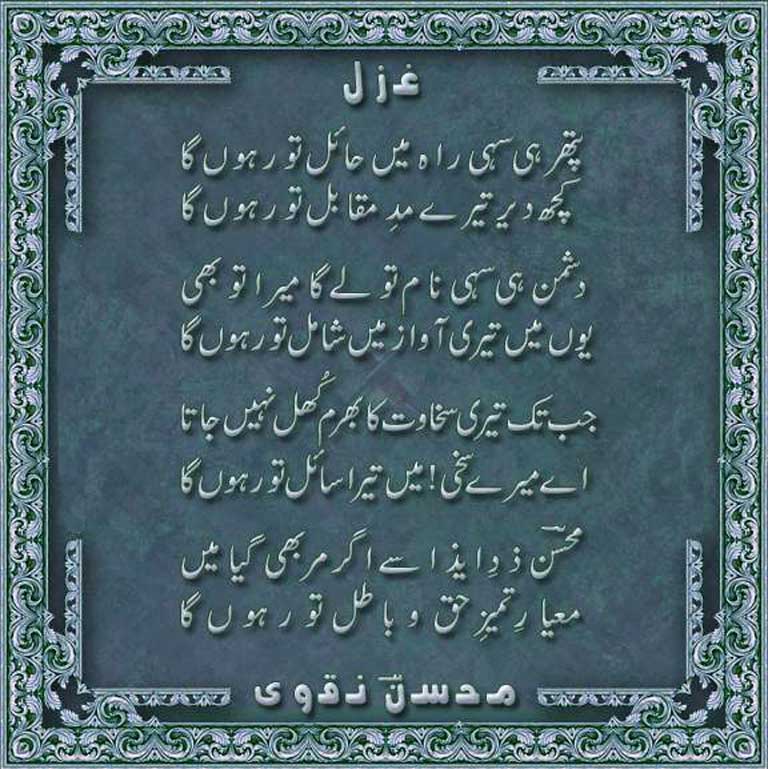 غزل
پتھر ہی سہی راہ میں حائل تو رہوں گا
کچھ دیر تیرے مدِ مقابل تو رہوں گا
دشمن ہی سہی نام تو لے گا میرا تو بھی
یوں میں تیری آواز میں شامل تو رہوں گا
جب تک تیری سخاوت کا بھرم کُھل نہیں جاتا
اے میرے سخی! میں تیرا سائل تو رہوں گا
محسنؔ زدِ ایذا سے اگر مر بھی گیا میں
معیارِ تمیزِ حق و باطل تو رہوں گا
محسنؔ نقوی